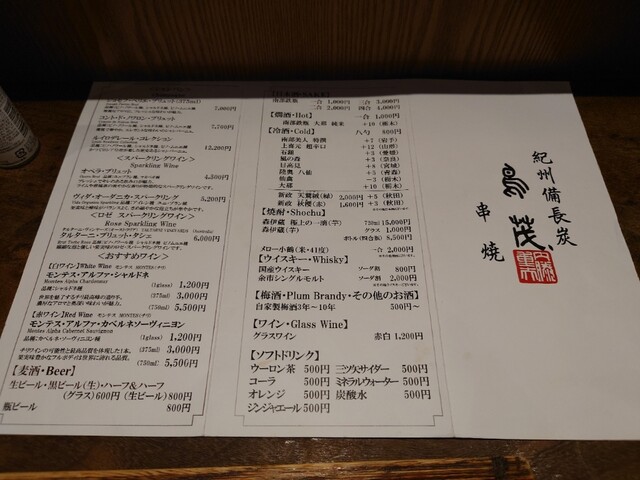 7,000円
コント・ド・ノワロン・ブリュット
7,700円
ルイロデレール・コレクション
12,200円
＜スパークリングワイン＞
Sparkling Wine
オペラ・ブリュット
4,300円
ヴィダ・オーガニカ・スパークリング
5,200円
＜ロゼ スパークリングワイン＞
Rose Sparkling Wine
6,000円
＜おすすめワイン＞
【白ワイン】White Wine モンテス MONTES(チリ)
モンテス・アルファ・シャルドネ
Montes Alpha Chardonnay
(1glass) 1,200円
品種:シャルドネ種
(375ml) 3,000円
(750ml) 5,500円
【赤ワイン】Red Wine モンテス MONTES(チリ)
モンテス・アルファ・カベルネソーヴィニヨン
Montes Alpha Cabernet Sauvignon
(1glass) 1,200円
品種:カベルネ・ソーヴィニヨン種
(375ml) 3,000円
(750ml) 5,500円
【麦酒・Beer】
生ビール・黒ビール(生)・ハーフ&ハーフ
(グラス)600円 (生ビール)800円
瓶ビール 800円
南部鉄瓶 一合 1,000円 三合 3,000円
二合 2,000円 四合 4,000円
【燗酒・Hot】 一合 1,000円
南部鉄瓶 大那 純米 +10 (栃木)
【冷酒・Cold】 八勺 800円
南部美人 特撰 +7 (岩手)
上喜元 超辛口 +12 (山形)
石鎚 +3 (愛媛)
風の森 +3 (奈良)
日高見 +8 (宮城)
陸奥 八仙 +5 (青森)
仙禽 +3 (栃木)
大那 +10 (栃木)
新政 天鵞絨(緑) 2,000円 +5 (秋田)
新政 秋櫻(赤) 1,600円 +3 (秋田)
【焼酎・Shochu】
森伊蔵 極上の一滴(芋) 720ml 15,000円
森伊蔵(芋) グラス 1,000円
ボトル(四合瓶) 8,500円
メロー小鶴(米・41度) 一合 2,000円
【ウイスキー・Whisky】
国産ウイスキー ソーダ割 800円
余市シングルモルト ソーダ割 2,000円
【梅酒・Plum Brandy・その他のお酒】
自家製梅酒3年～10年 500円～
【ワイン・Glass Wine】
グラスワイン 赤白 1,200円
【ソフトドリンク】
ウーロン茶 500円 三ツ矢サイダー 500円
コーラ 500円 ミネラルウォーター 500円
オレンジ 500円 炭酸水 500円
ジンジャエール 500円
紀州備長炭
鳥茂
串焼